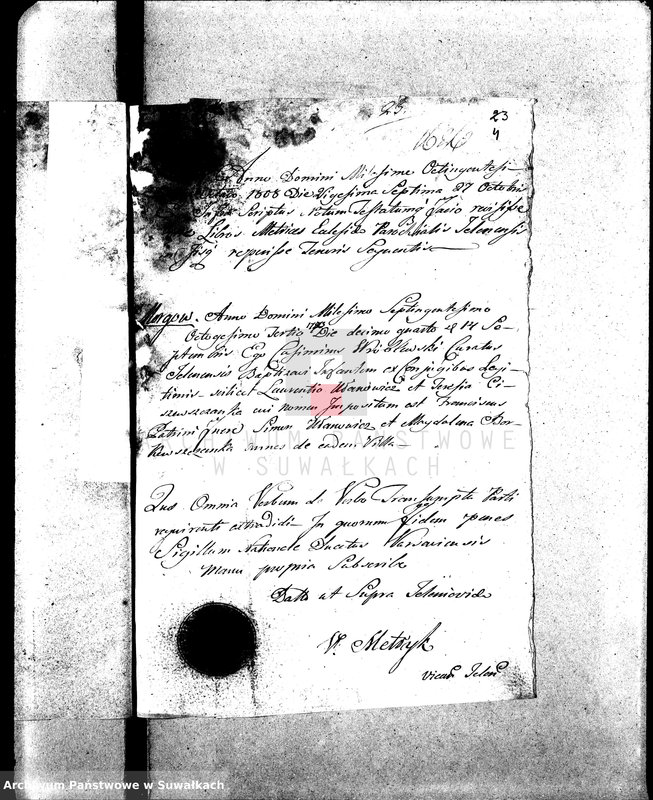 23.
23
4
Anno Domini Milesimo Octingentesi
1808 Die Vigesima Septima 27 Octobris
Infra Scriptus Notum Testatumq Facio revisisse
Libros Metrices Eclesiae Parochialis Jelenensis
reperisse Tenoris Sequentis
Margow. Anno Domini Milesimo Septingentesimo
Octogesimo Tertio 1783 Die decimo quarto d 14 Se-
ptembris Ego Casimirus Wróblewski Curatus
Jelenensis Baptizavi Infantem ex Conjugibus Legi
timis scilicet Laurentio Ulanowicz et Teresia
cui nomen Impositum est Franciscus
Patrini fuere Simon Ulanowicz et Magdalena Bor-
omnes de eadem Villa
Quo Omnia Verbum de Verbo Transumpta Parti
requirenti extradidi In quorum fidem penes
Sigillum Nationale Ducatus Varsaviensis
Manu propria Subscribo
Datto ut Supra
V. Metryk
ARCHIWUM PAŃSTWOWE
W SUWAŁKACH
Archiwum Państwowe w Suwałkach